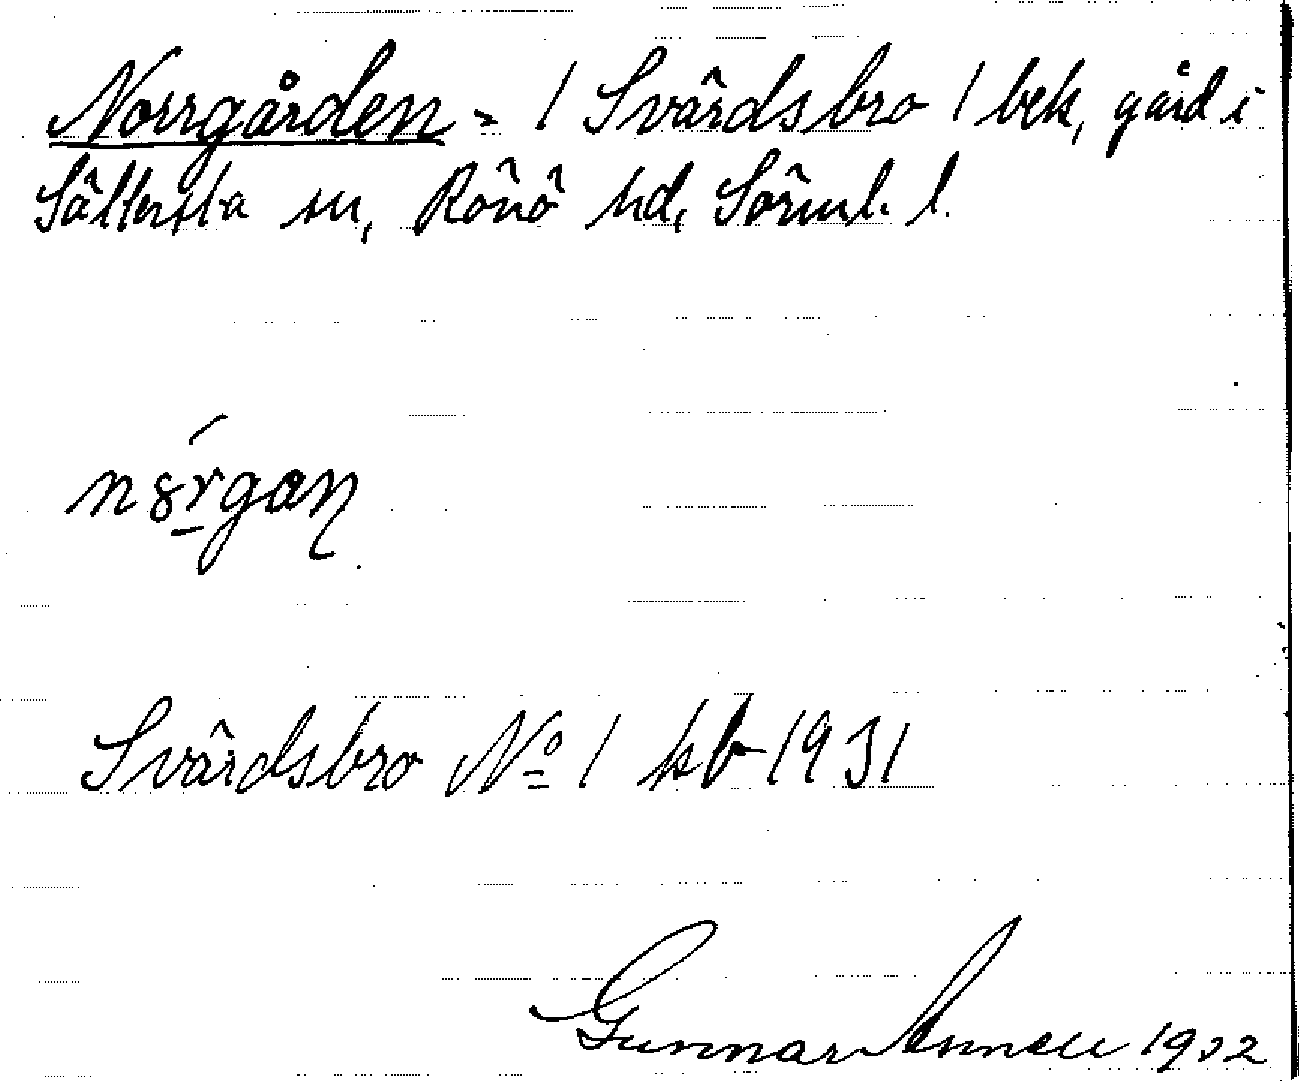 Norrgården = 1 Svärdsbro 1 bek, gård i
Sättersta sn, Rönö hd, Sörml. l.
n8́r̠gaɳ
Svärdsbro Nº 1 kb 1931
Gunnar 1932